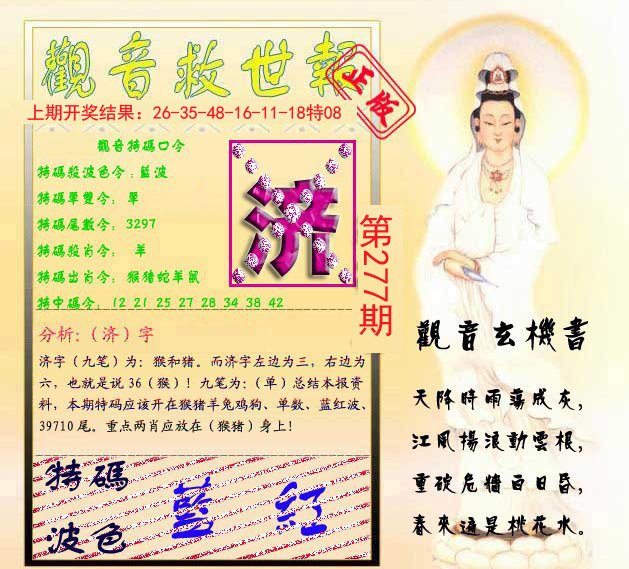 觀音救世報
正版
上期开奖结果：26-35-48-16-11-18特08
觀音特碼口令
特碼殺波色令：藍波
特碼單雙令： 單
特碼尾數令：3297
特碼殺肖令： 羊
特碼出肖令： 猴猪蛇羊鼠
特中碼令： 12 21 25 27 28 34 38 42
济
第277期
分析:（济）字
济字（九笔）为：猴和猪。而济字左边为三，右边为
六，也就是说 36（猴）！九笔为：（单）总结本报资
料，本期特码应该开在猴猪羊兔鸡狗、单数、蓝红波、
39710 尾。重点两肖应放在（猴猪）身上！
特碼
波色
藍 紅
觀音玄機書
天降時雨蕩成灰，
江風揚浪動雲根，
重破危牆百日昏，
春來遍是桃花水。